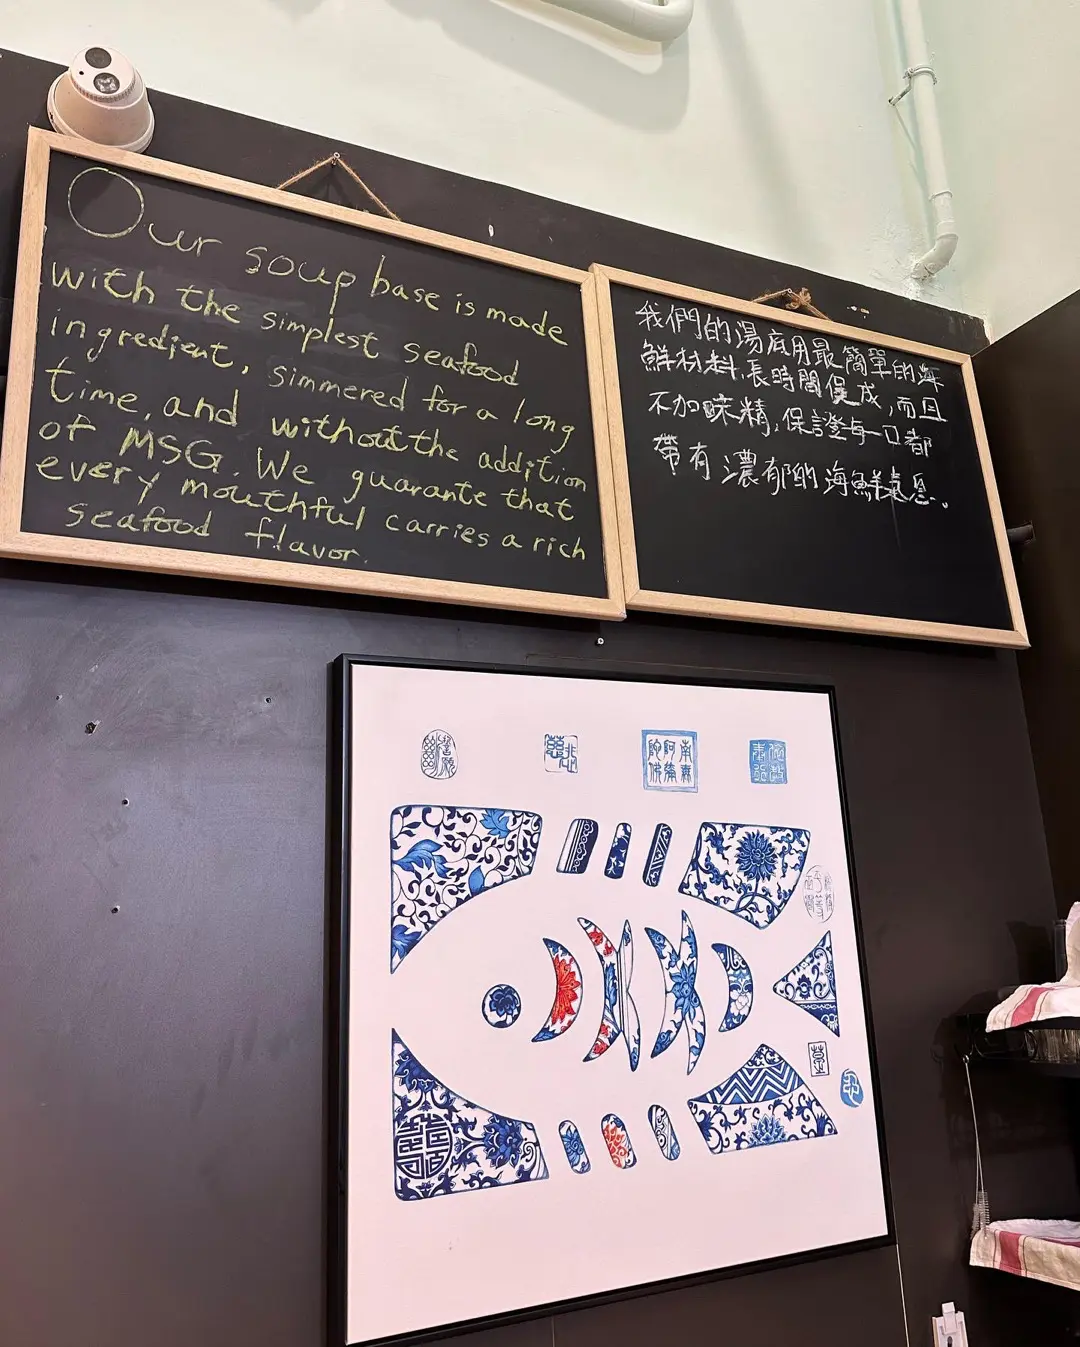 Our soup base is made
with the simplest seafood
ingredient, simmered for a long
time, and without the addition
of MSG. We guarante that
every mouthful carries a rich
seafood flavor.
我們的湯底用最簡單的海
鮮材料,長時間煲成,而且
不加味精,保證每一口都
帶有濃郁的海鮮氣息。
慈悲
南無阿彌陀佛